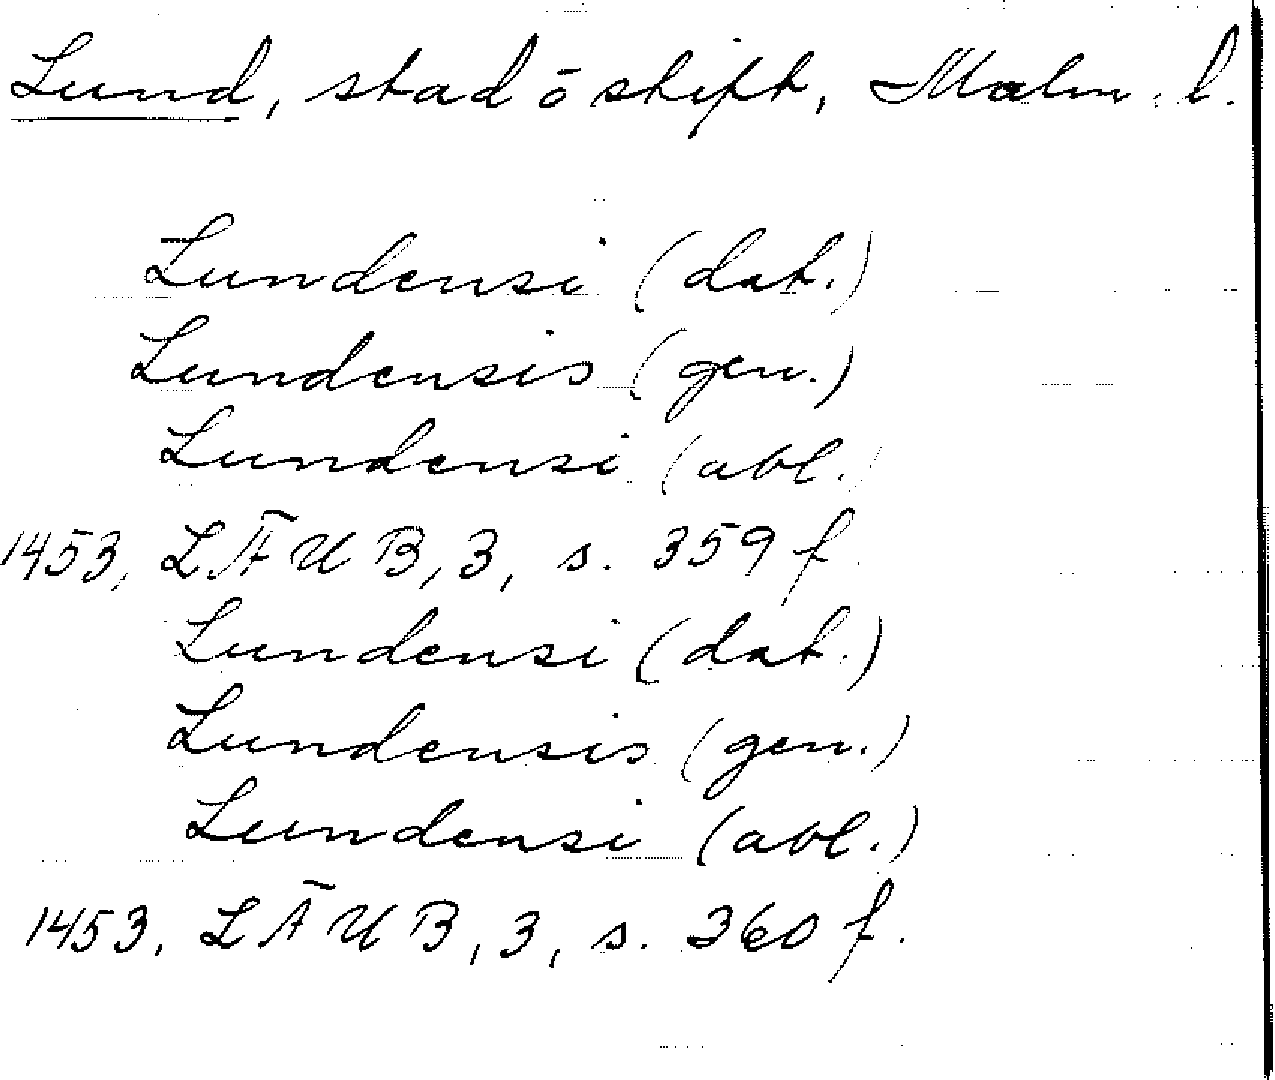 Lund, stad ō stift, Malm. l.
Lundensi (dat.)
Lundensis (gen.)
Lundensi (abl.)
1453, LÄUB, 3, s. 359 f.
Lundensi (dat.)
Lundensis (gen.)
Lundensi (abl.)
1453, LÄUB, 3, s. 360 f.